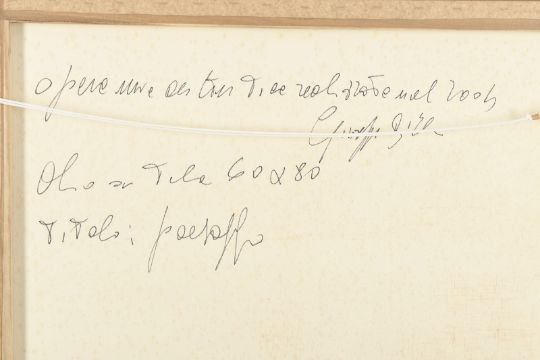 opera mia autentica realizzata nel 2004
Giuseppe
Olio su Tela 60 x 80
Titolo: paesaggio